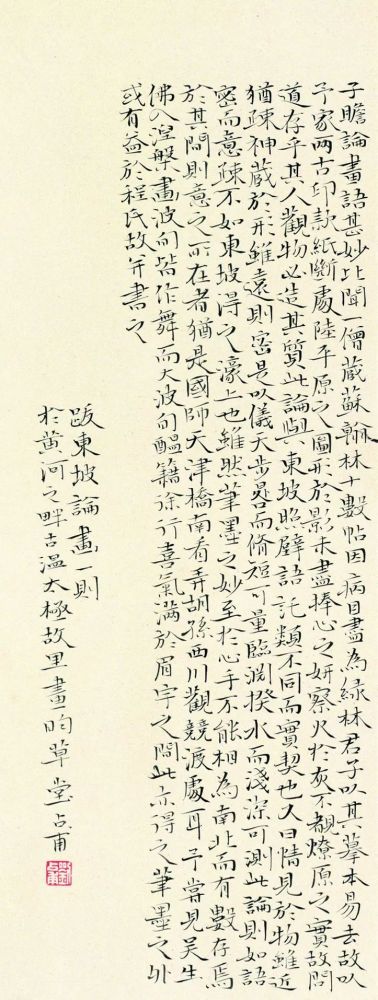 子瞻論畫語甚妙比聞一僧藏蘇翰林十數帖因病目盡為緑林君子以其摹本易去故以
予家兩古印款紙斷處陸平原之圖形於影未盡捧心之妍察火於灰不覩燎原之實故問
道存乎其人觀物必造其質此論與東坡照壁語託類不同而實契也又曰情見於物雖近
猶疎神藏於形雖遠則密是以儀天步晷而脩短可量臨淵揆水而淺深可測此論則如語
密而意疎不如東坡得之濠上也雖然筆墨之妙至於心手不能相為南北而有數存焉
於其間則意之所在者猶是國師天津橋南看弄胡孫西川觀競渡處耳予嘗見吳生
佛入涅槃畫波旬皆作舞而大波旬醞籍徐行喜氣滿於眉宇之間此亦得之筆墨之外
或有益於程氏故并書之
跋東坡論畫一則
於黄河之畔古温太極故里畫昀草堂占甫